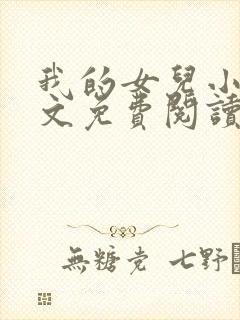 我的女兒小
文免費閱讀
無糖党 七野